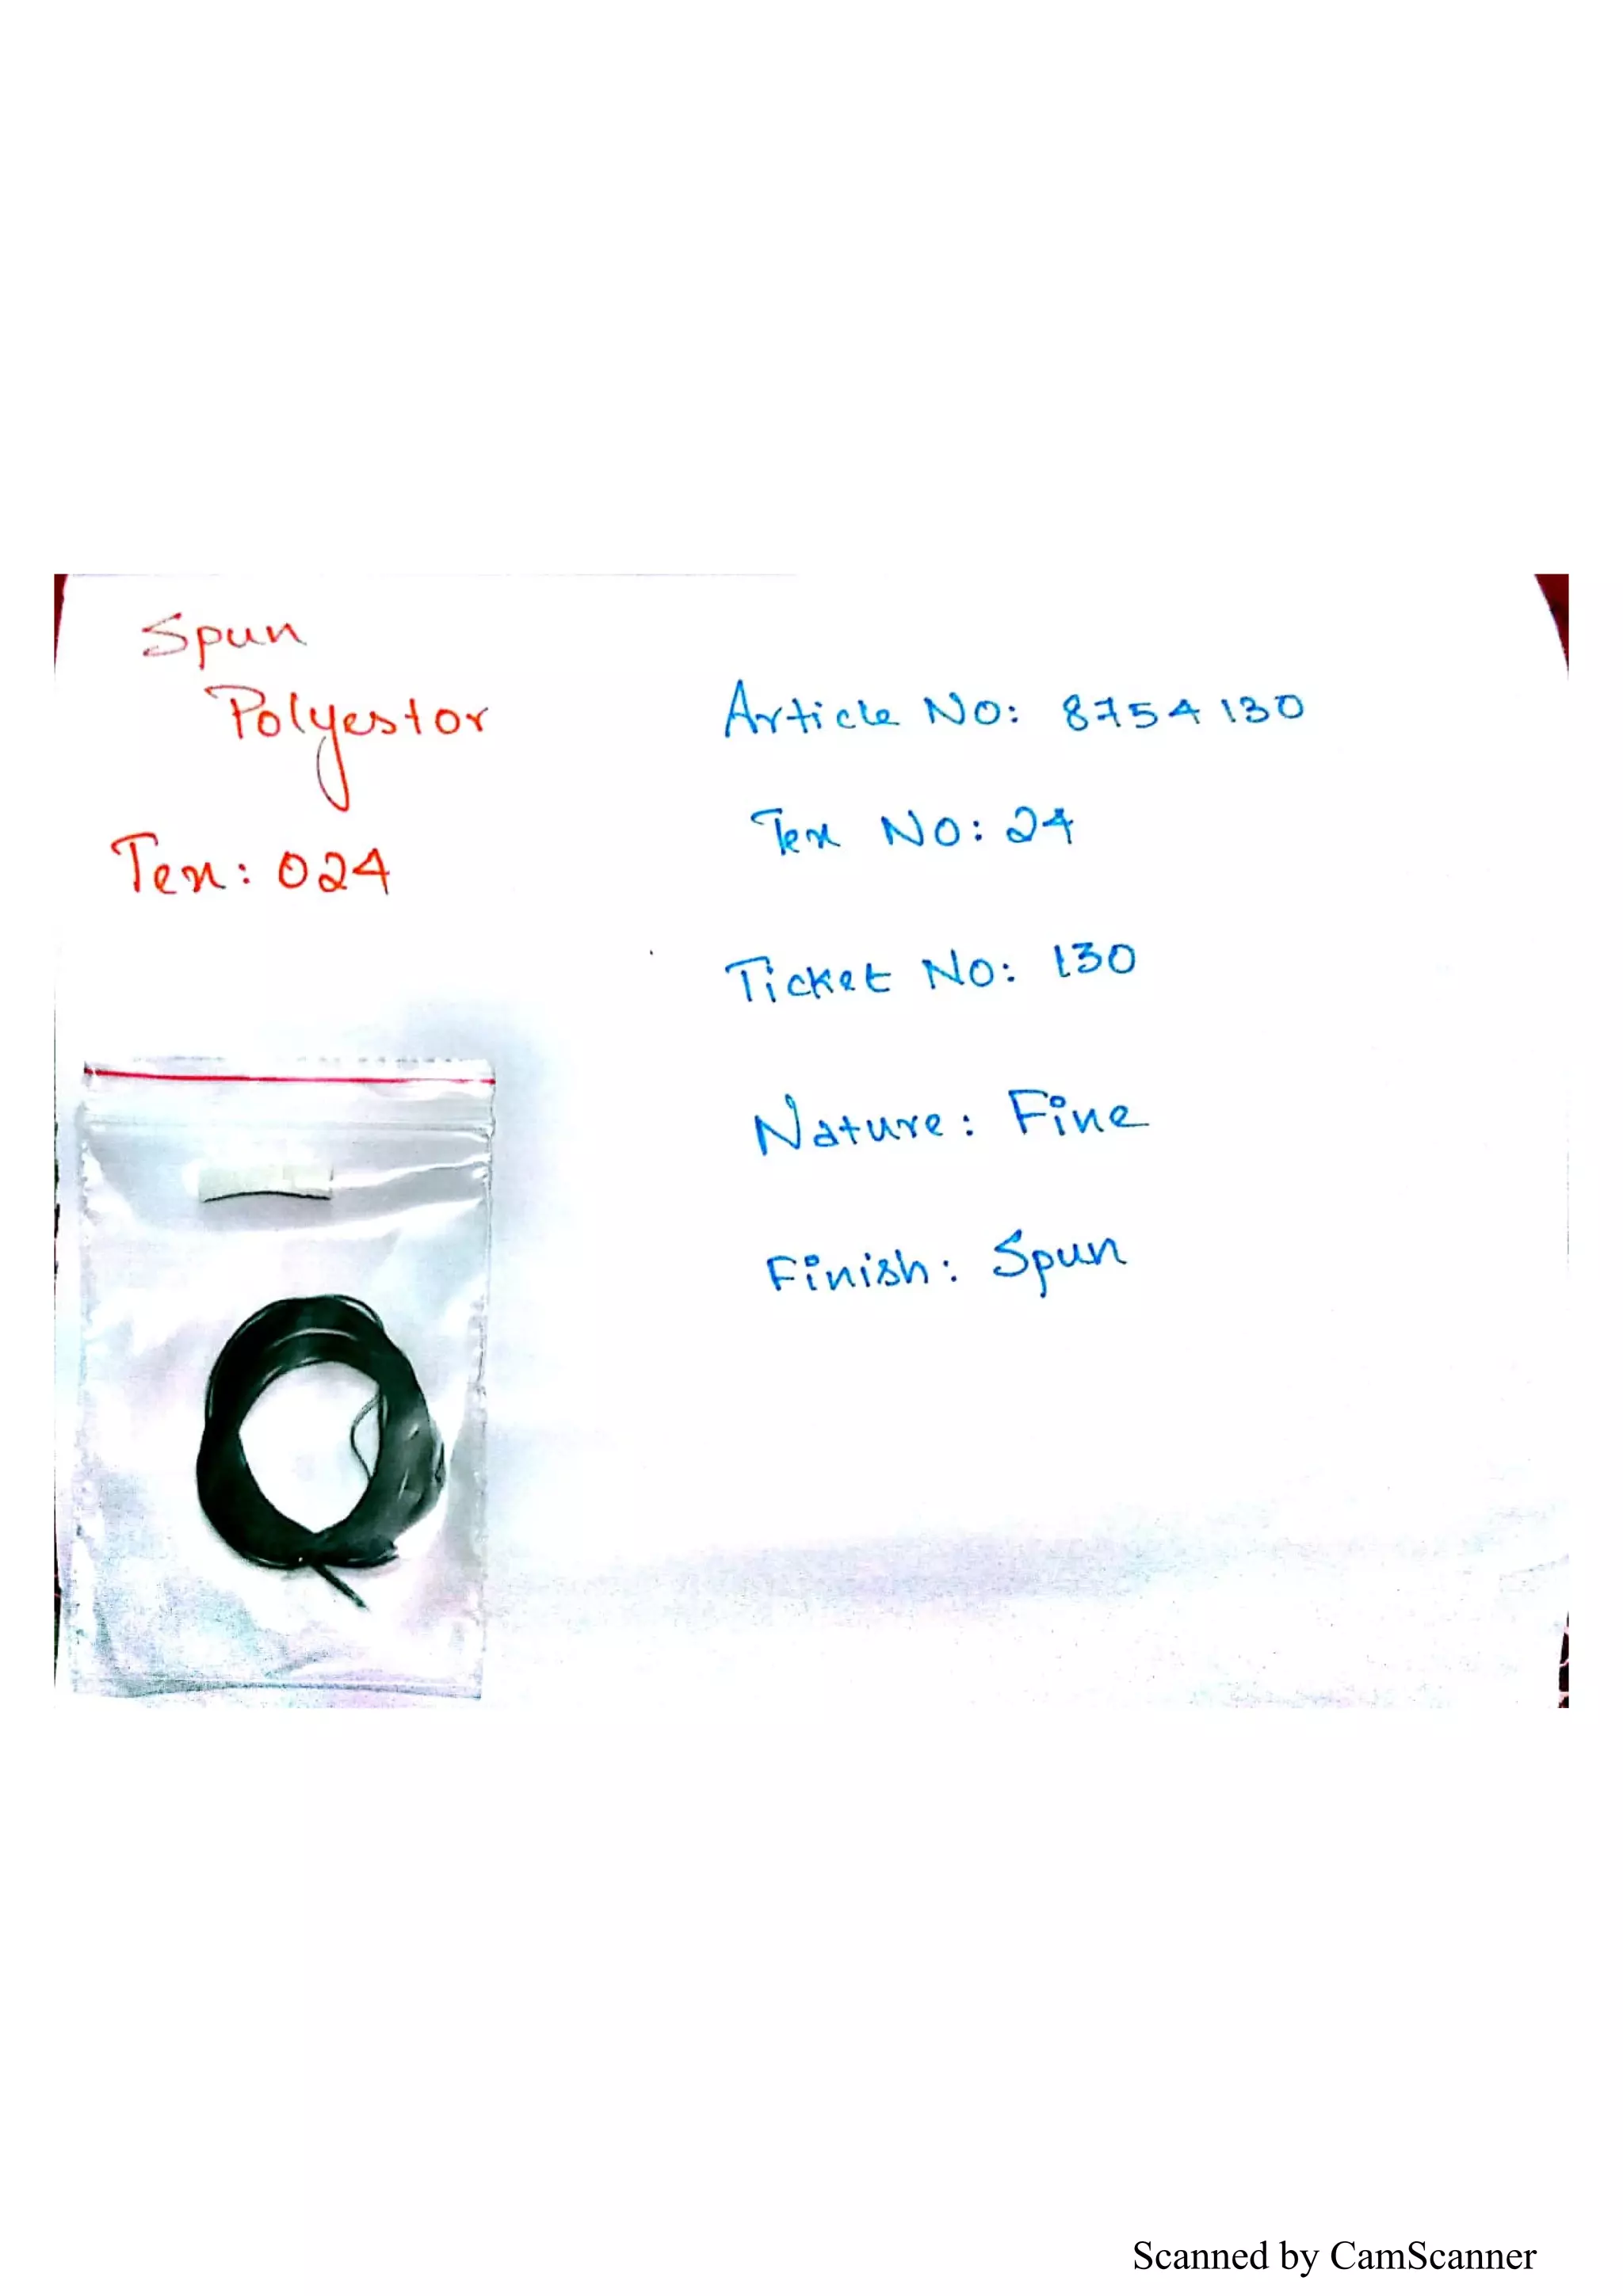 Spun
Polyestor
Tex: 024
Article No: 8754130
Tex No: 24
Ticket No: 130
Nature: Fine
Finish: Spun
Scanned by CamScanner